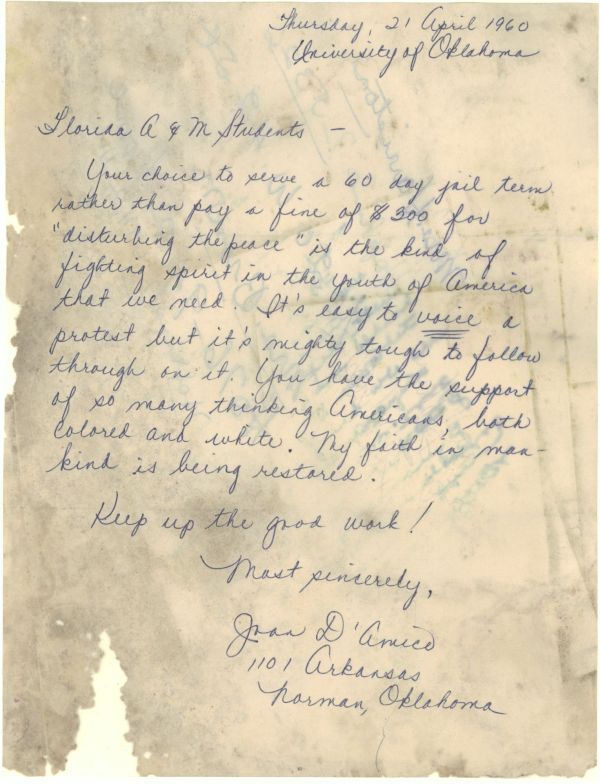 Thursday, 21 April 1960
University of Oklahoma
Florida A & M Students —
Your choice to serve a 60 day jail term
rather than pay a fine of $300 for
"disturbing the peace" is the kind of
fighting spirit in the youth of America
that we need. It's easy to voice a
protest but it's mighty tough to follow
through on it. You have the support
of so many thinking Americans, both
colored and white. My faith in man-
kind is being restored.
Keep up the good work!
Most sincerely,
Joan D'Amico
1101 Arkansas
Norman, Oklahoma